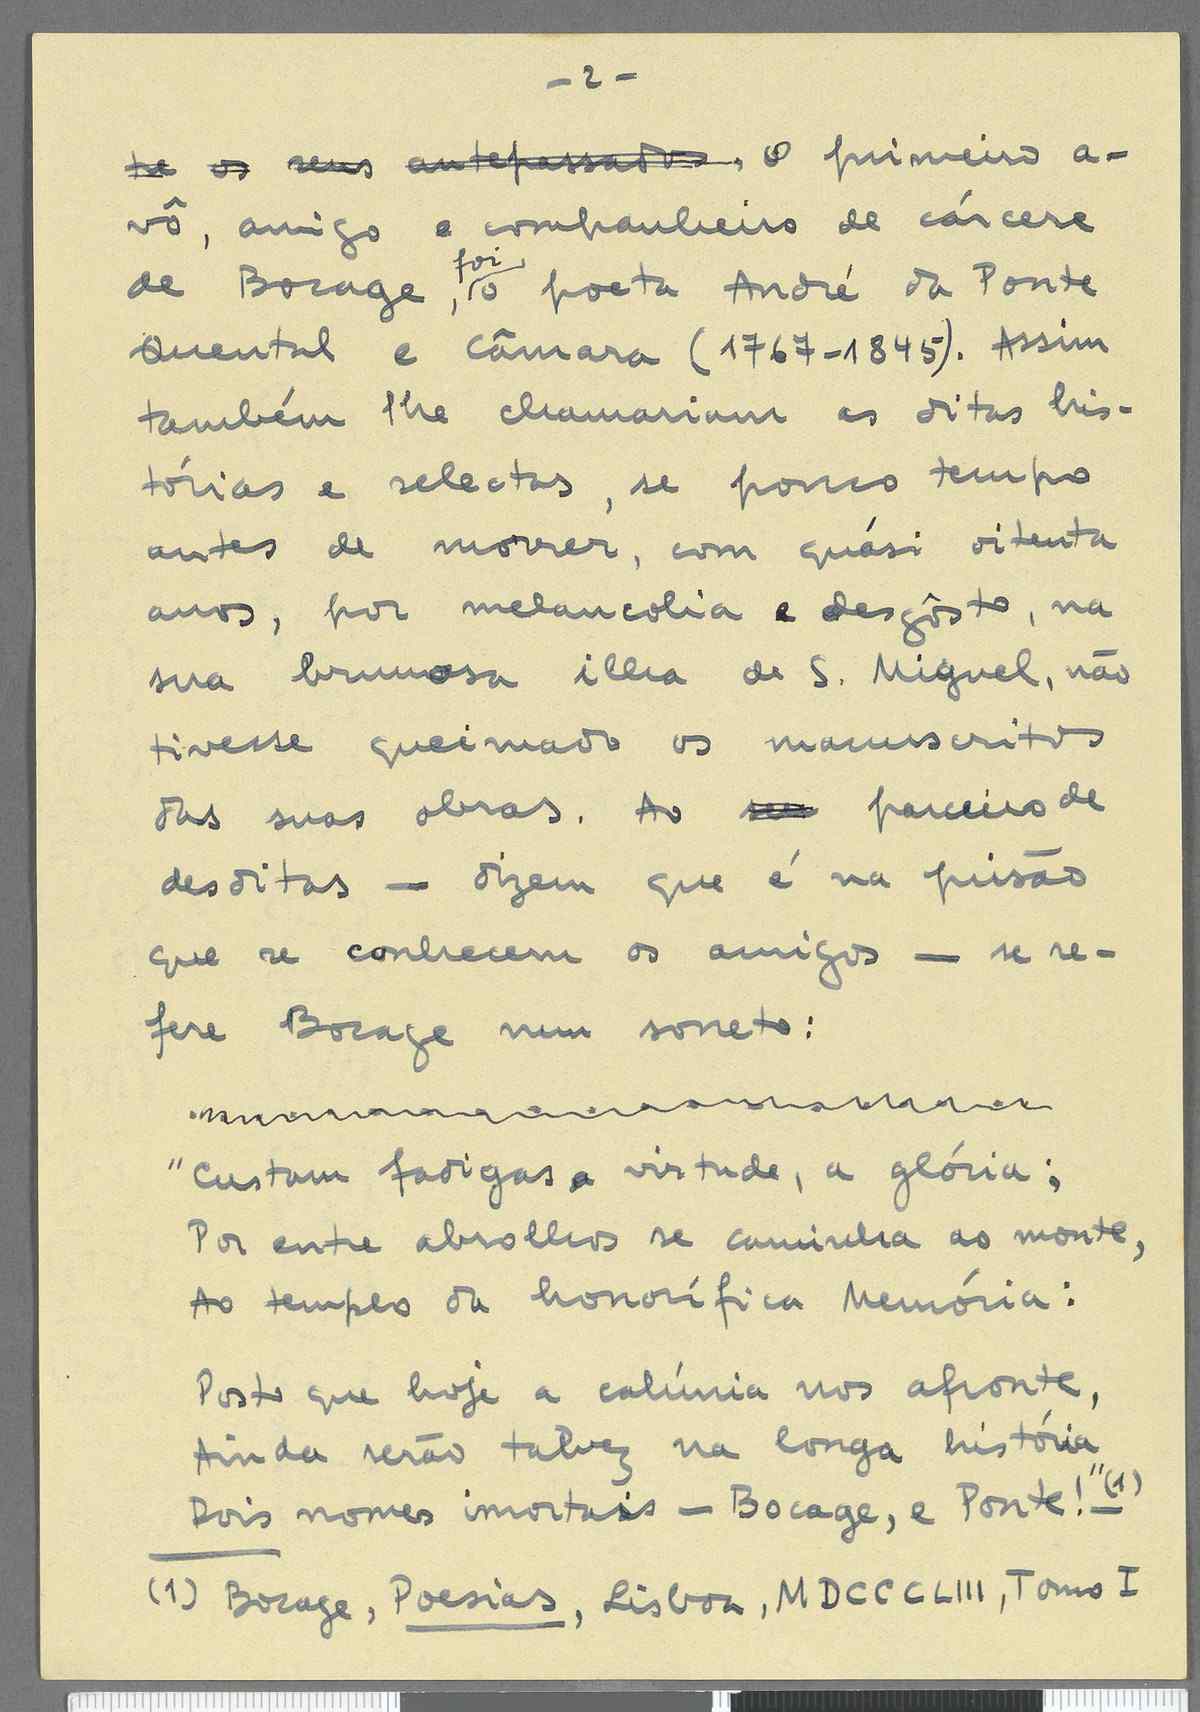 - 2 -
te os seus antepassados. O primeiro a-
vô, amigo e companheiro de cárcere
de Bocage, foi o poeta André da Ponte
Quental e Câmara (1767-1845). Assim
também lhe chamariam as ditas his-
tórias e selectas, se pouco tempo
antes de morrer, com quási oitenta
anos, por melancolia e desgôsto, na
sua brumosa ilha de S. Miguel, não
tivesse queimado os manuscritos
das suas obras. Ao seu parceiro de
desditas — dizem que é na prisão
que se conhecem os amigos — se re-
fere Bocage num soneto:
"Custam fadigas a virtude, a glória;
Por entre abrolhos se caminha ao monte,
Ao templo da honorífica Memória:
Posto que hoje a calúnia nos afronte,
Ainda serão talvez na longa história
Dois nomes imortais — Bocage, e Ponte!" (1)
(1) Bocage, Poesias, Lisboa, MDCCCLIII, Tomo I